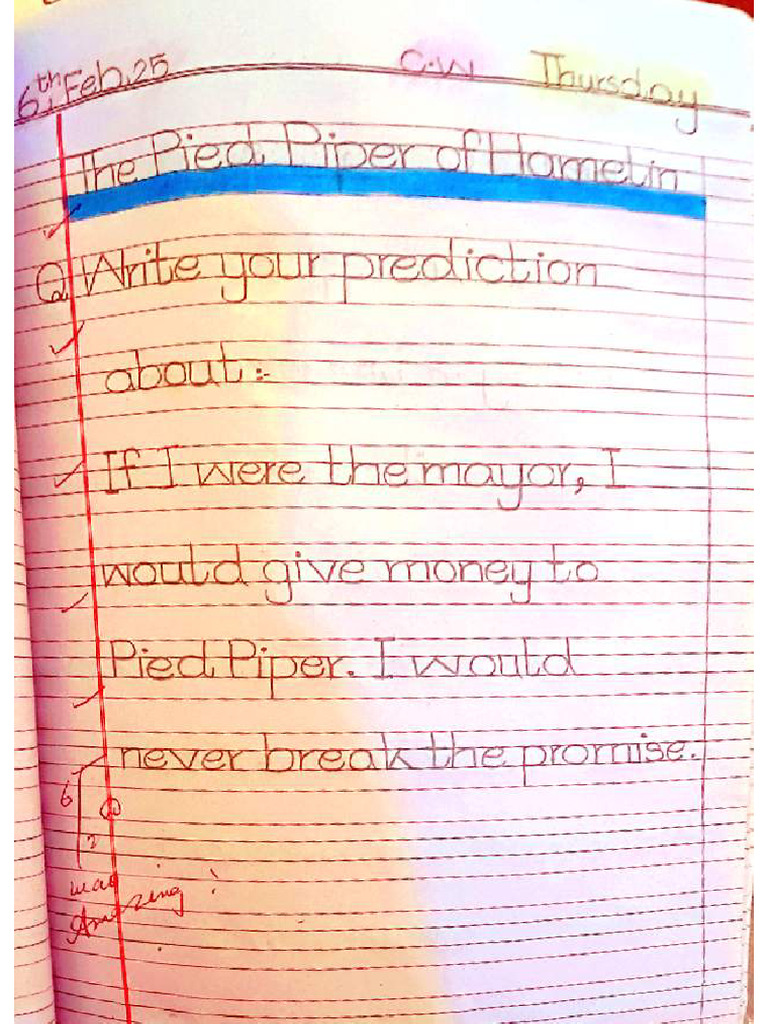 6th Feb, 25 C.W Thursday
The Pied Piper of Hamelin
Q Write your prediction
about:-
If I were the mayor, I
would give money to
Pied Piper. I would
never break the promise.
6
Amazing!